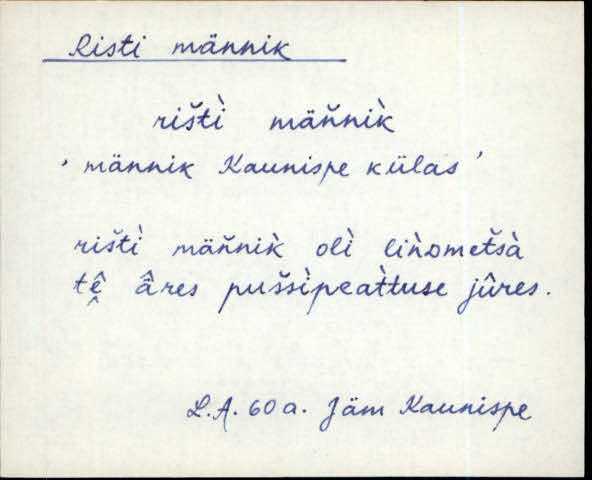 Risti männik
rištì mäňnìk
' männik Kaunispe külas '
rištì mäňnìk olì liǹᴅometšà
tê̬ âres puššìpeàttuse jûres.
L.A. 60a. Jäm Kaunispe